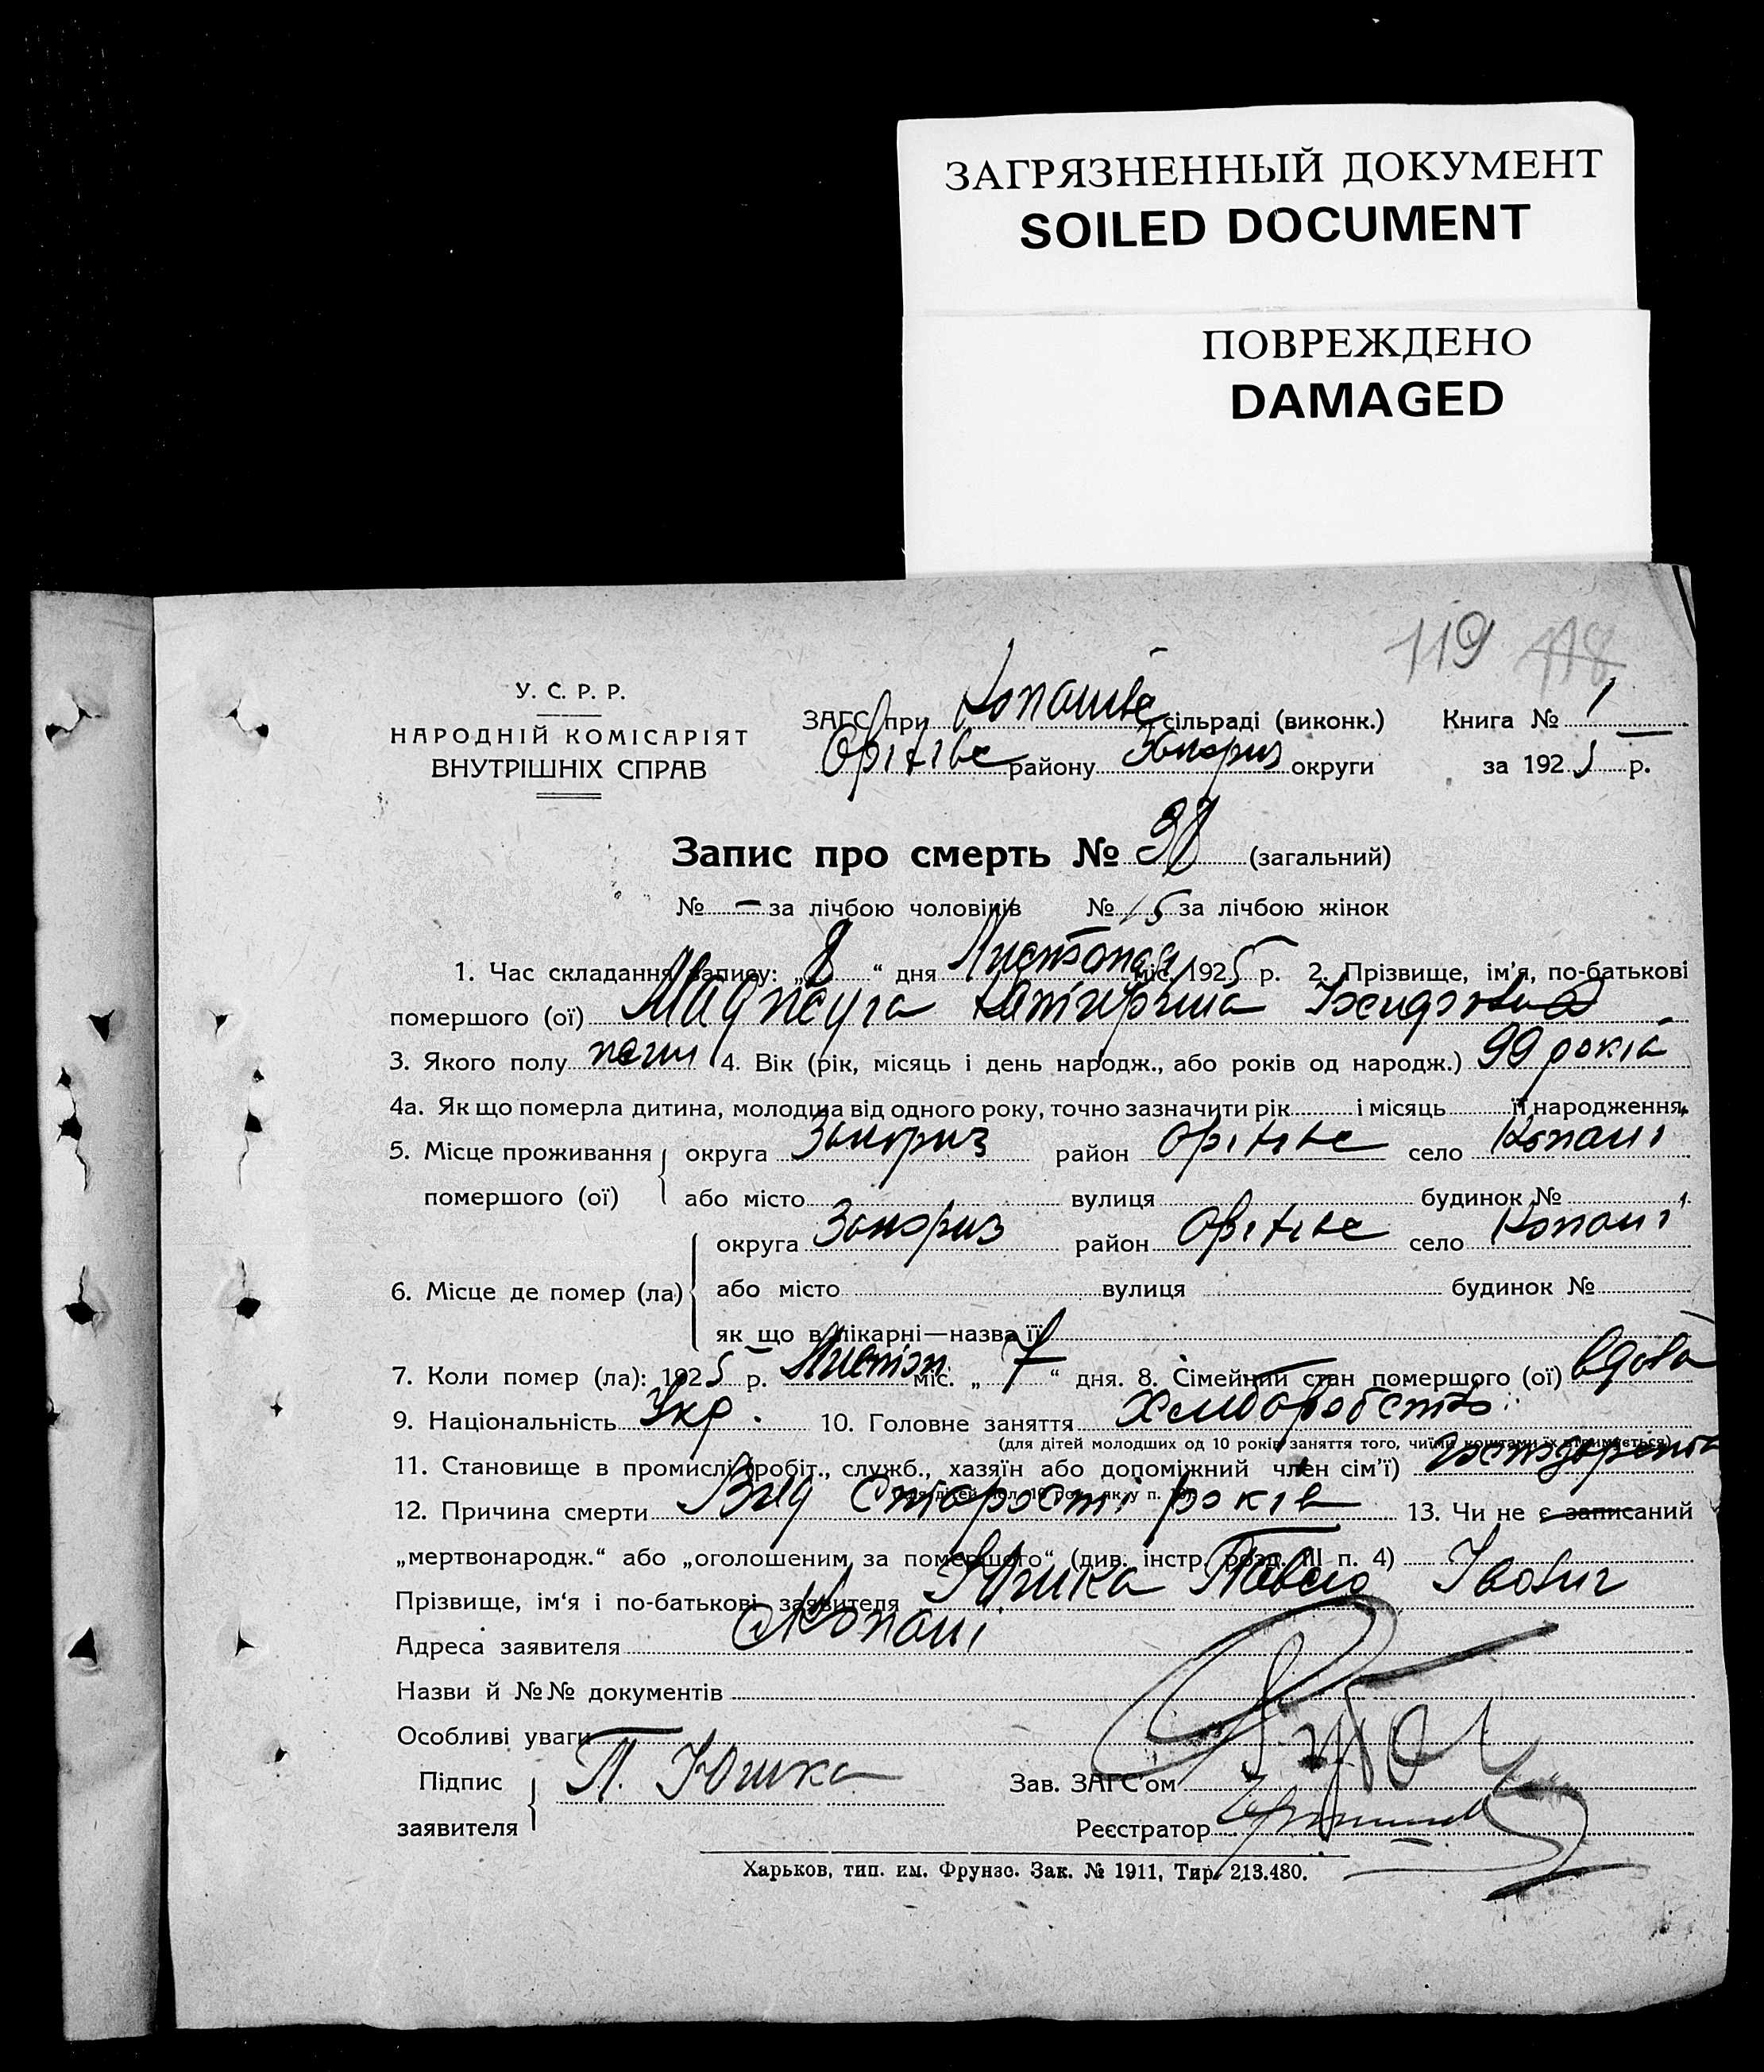 ЗАГРЯЗНЕННЫЙ ДОКУМЕНТ
SOILED DOCUMENT
ПОВРЕЖДЕНО
DAMAGED
119 118
У. С. Р. Р.
НАРОДНІЙ КОМІСАРІЯТ
ВНУТРІШНІХ СПРАВ
ЗАГС при сільраді (виконк.) Книга № 1
району Запориз округи за 1925 р.
Запис про смерть № 38 (загальний)
№ — за лічбою чоловіків № 15 за лічбою жінок
1. Час складання запису: „8“ дня Листопад міс. 1925 р. 2. Прізвище, ім'я, по-батькові
помершого (ої)
3. Якого полу 4. Вік (рік, місяць і день народж., або років од народж.) 99 років
4а. Як що померла дитина, молодша від одного року, точно зазначити рік і місяць її народження
5. Місце проживання помершого (ої) округа Запориз район Оріхіве село Копані
або місто вулиця будинок №
6. Місце де помер (ла) округа Запориз район Оріхіве село Копані
або місто вулиця будинок №
як що в лікарні—назва її
7. Коли помер (ла): 1925 р. Листоп міс. „7“ дня. 8. Сімейний стан помершого (ої) вдова
9. Національність Укр. 10. Головне заняття
(для дітей молодших од 10 років заняття того, чиїми коштами їх утримується)
11. Становище в промислі (робіт., служб., хазяїн або допоміжний член сім'ї)
12. Причина смерти Від Старости років 13. Чи не є записаний
„мертвонародж.“ або „оголошеним за помершого“ (див. інстр. розд. III п. 4)
Прізвище, ім'я і по-батькові заявителя Юшка Павло Іванович
Адреса заявителя Копані
Назви й №№ документів
Особливі уваги
Підпис заявителя П. Юшка
Зав. ЗАГС'ом
Реєстратор
Харьков, тип. им. Фрунзе. Зак. № 1911, Тир. 213.480.